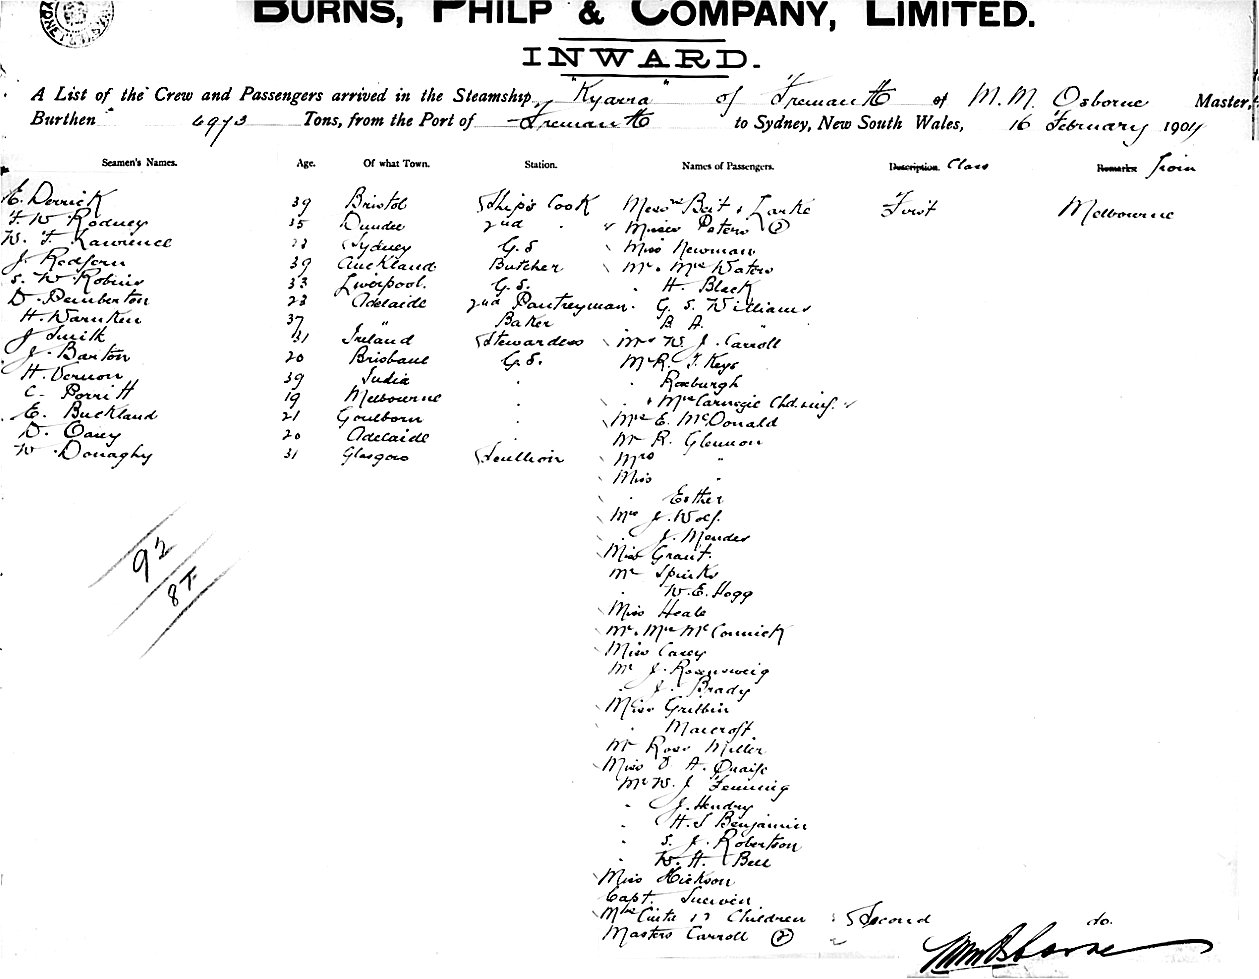 BURNS, PHILP & COMPANY, LIMITED.
INWARD.
A List of the Crew and Passengers arrived in the Steamship "Kyarra" of Fremantle M. M. Osborne Master,
Burthen 6973 Tons, from the Port of Fremantle to Sydney, New South Wales, 16 February 1904
Seamen's Names. Age. Of what Town. Station. Names of Passengers. Description. Class Remarks from
E. Derrick 39 Bristol Ship's Cook Bert & Larke First Melbourne
F. W. Rodney 35 Dundee 2nd " Misses Peters (2)
W. F. Lawrence Sydney G.S. Miss Newman
J. Redfern 39 Auckland Butcher Mr. Mrs Waters
S. W. Robins 33 Liverpool. G.S. " H. Black
D. Pemberton 23 Adelaide 2nd Pantreyman. G. S. Williams
H. Warnken 37 " Baker B A. "
J. Smith 31 Ireland Stewardess W. J. Carroll
J. Barton 20 Brisbane G.S. Mr R. J. Keys
H. Vernon 39 India " " Roxburgh
C. Porritt 19 Melbourne " " Mrs Carnegie Chd. inf.
E. Buckland 21 Goulborn " Mrs E. McDonald
D. Casey 20 Adelaide " Mr R. Glennon
W. Donaghy 31 Glasgow Scullion Mrs "
Miss "
" Esther
Mrs J. Wolf.
" J. Mendes
Miss Grant.
Mr Spinks
" W. E. Hogg
Miss Heale
Mr. Mrs McCormick
Miss Casey
Mr J. Rosensweig
" J. Brady
Miss Gribbin
" Marcroft
Mr Ross Miller
Miss A. Quaife
Mr W. J. Fenning
" J. Hendry
" H. S Benjamin
" S. J. Robertson
" W. H. Bell
Miss Hickson
Capt.
Children Second do.
Masters Carroll (2) "
92
87